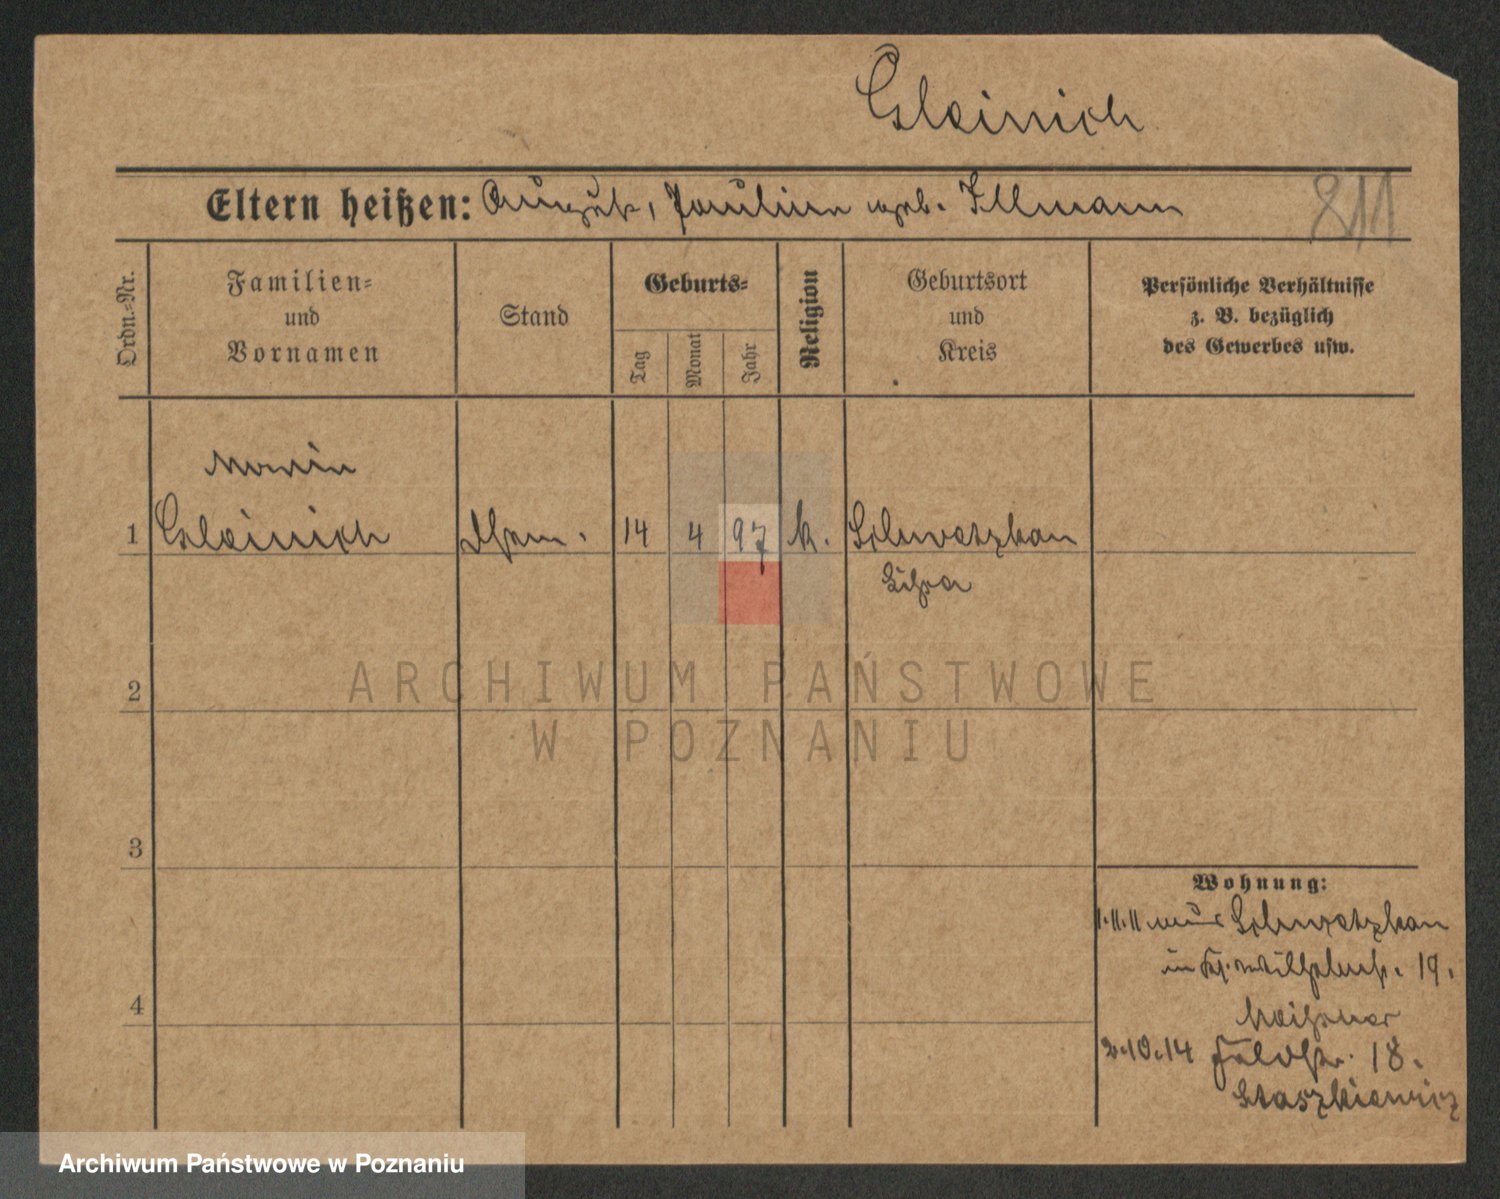 Gleinich
Eltern heißen: August, Pauline geb. Illmann
811
Ordn.-Nr.
Familien-
und
Vornamen
Stand
Geburts-
Tag
Monat
Jahr
Religion
Geburtsort
und
Kreis
Persönliche Verhältnisse
z. B. bezüglich
des Gewerbes usw.
Maria
1 Gleinich 14 4 97 k. Schwetzkau
Lissa
2
3
4
Wohnung:
1.11.11 aus Schwetzkau
in 19.
Meissner
2.10.14 Feldstr. 18.
Staszkiewicz
ARCHIWUM PAŃSTWOWE
W POZNANIU
Archiwum Państwowe w Poznaniu